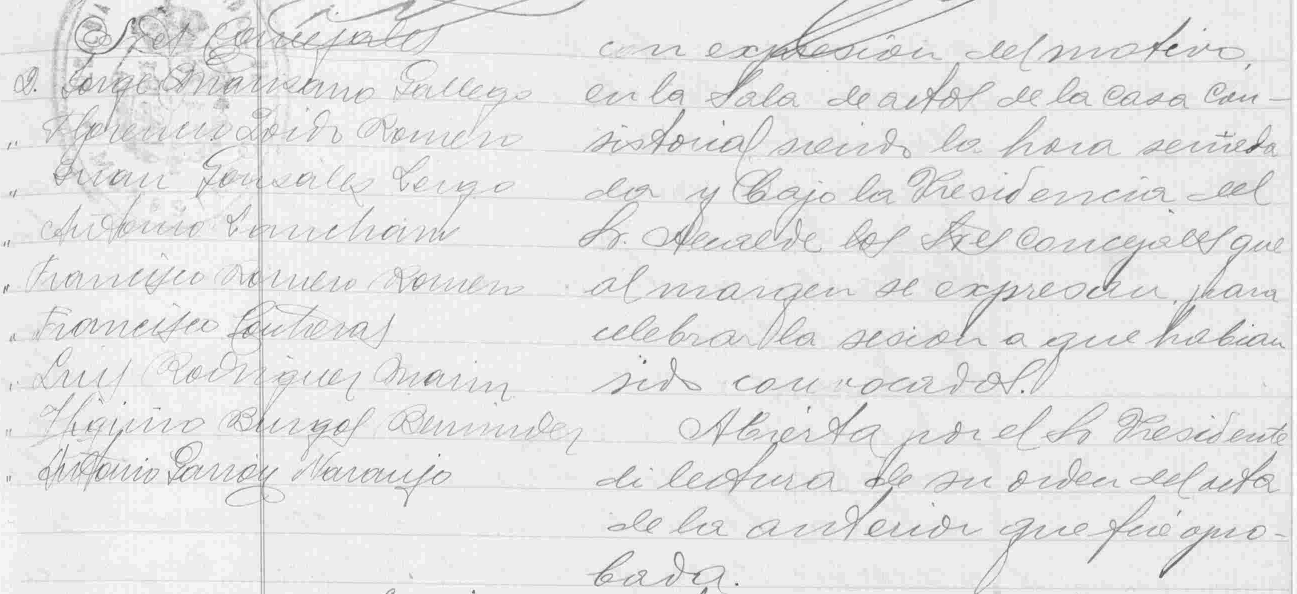 Sres Concejales
D. Jorge Manzano Gallego
" Florencio Romero
" Juan Gonzales
" Antonio
" Francisco Romero Romero
" Francisco Contreras
" Luis Rodriguez Marin
" Higinio Burgos Bermudez
" Antonio Garroy Naranjo
con expresion del motivo,
en la Sala de actos de la casa Con-
sistorial siendo la hora señeda
da y bajo la Presidencia del
Sr. Alcalde los Sres Concejales que
al margen se expresan, para
celebrar la sesion a que habian
sido convocados.
Abierta por el Sr Presidente
di lectura de su orden del acta
de la anterior que fué apro-
bada.